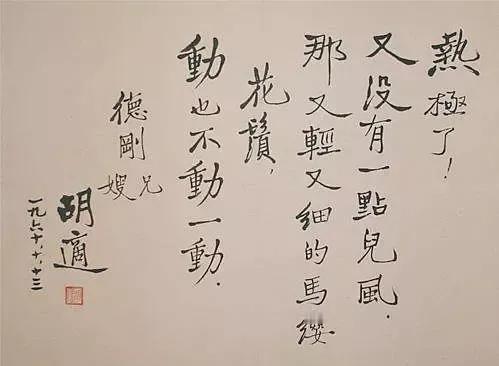 熱極了！
又没有一點兒風．
那又輕又细的馬纓
花鬚，
動也不動一動．
德剛兄
嫂
胡適
一九六十、十、十三